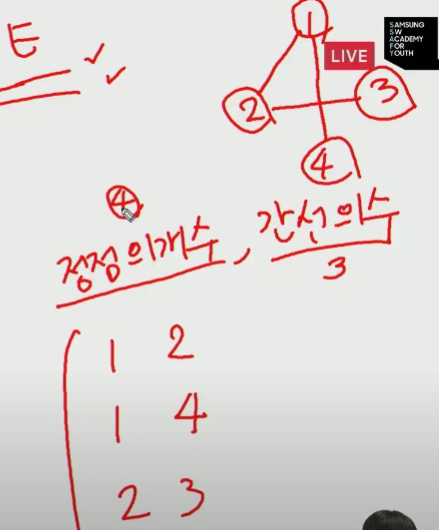 E
1
2
3
4
LIVE
SAMSUNG
SW
ACADEMY
FOR
YOUTH
4
정점의개수, 간선의수
3
1 2
1 4
2 3